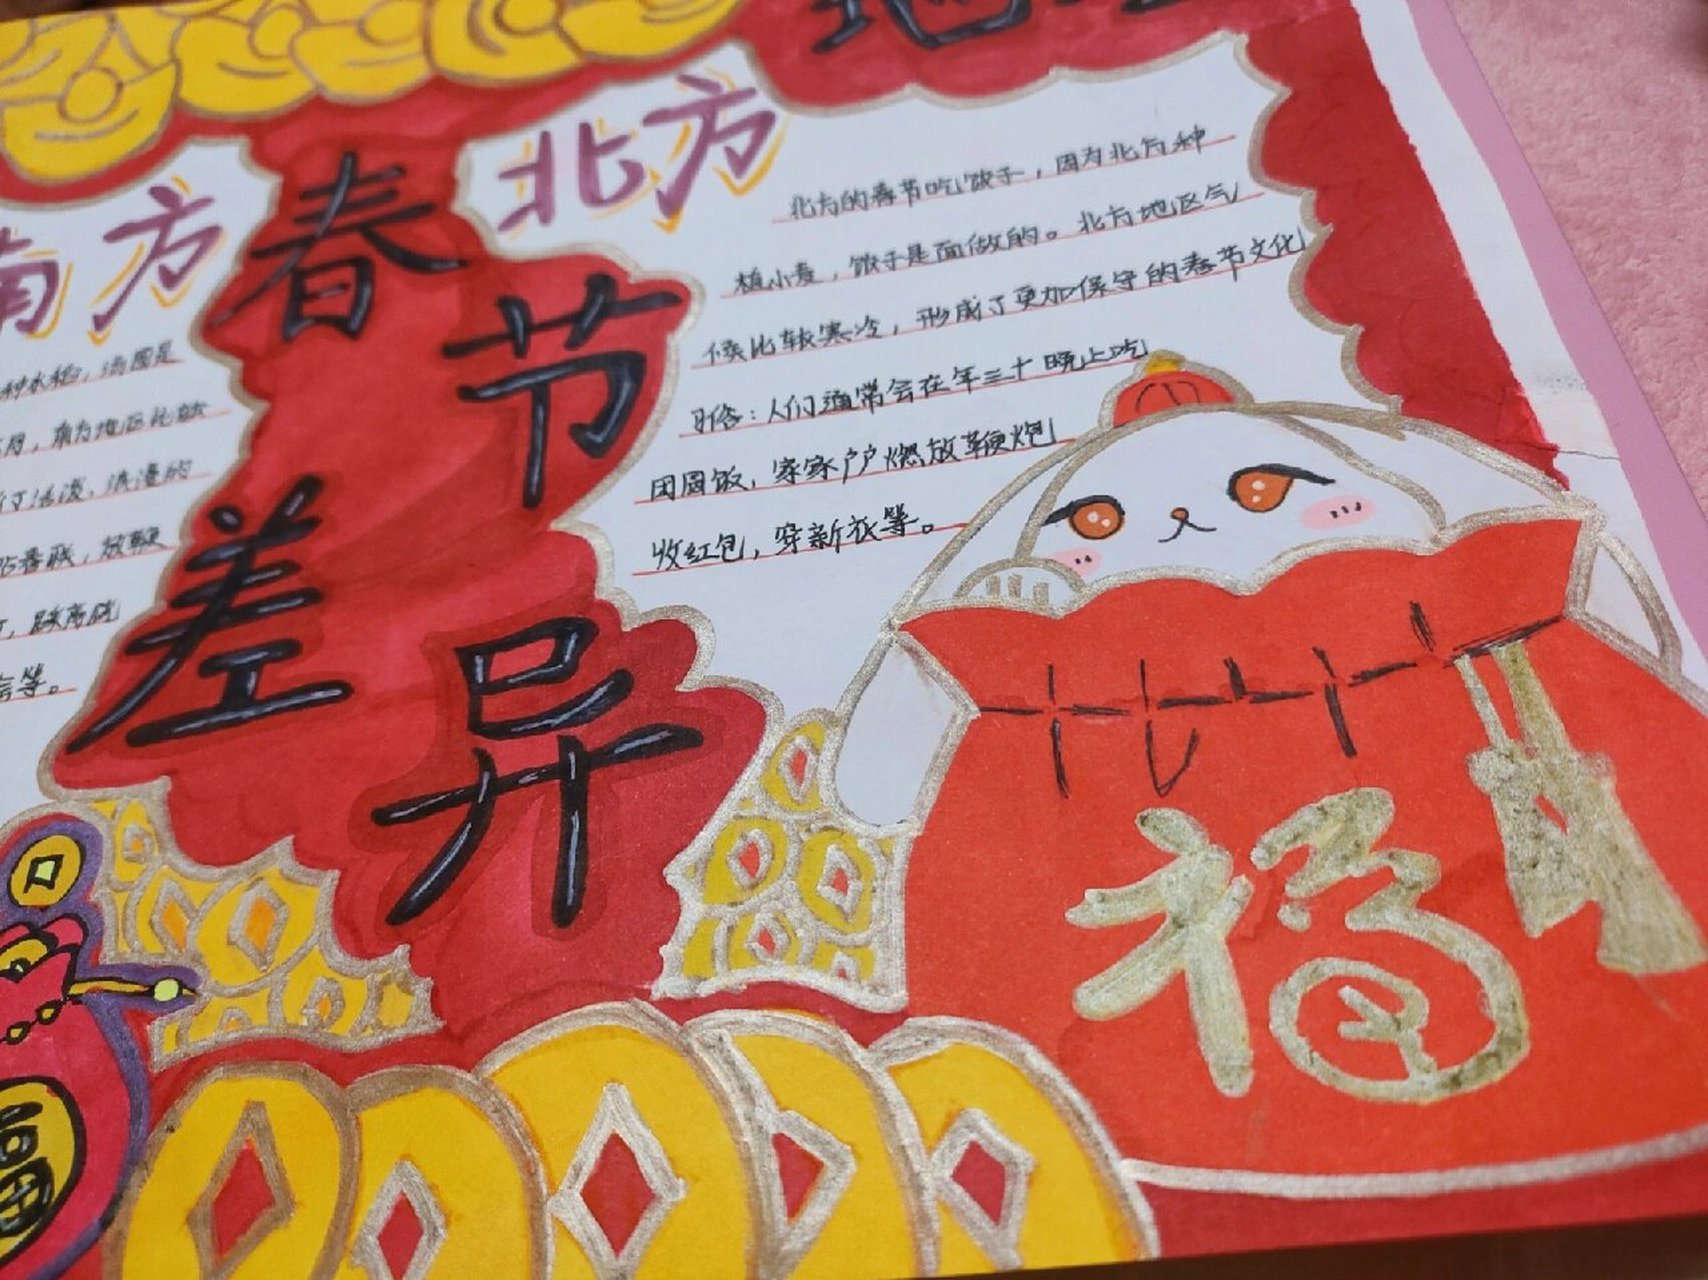 地
南方
种水稻,汤圆是
,南方地区比较
了活泼、浪漫的
贴春联,放鞭
,踩高跷
等。
春节
差异
北方
北方的春节吃饺子,因为北方种
植小麦,饺子是面做的。北方地区气
候比较寒冷,形成了更加保守的春节文化
习俗:人们通常会在年三十晚上吃
团圆饭,家家户户燃放鞭炮
收红包,穿新衣等。
福
福